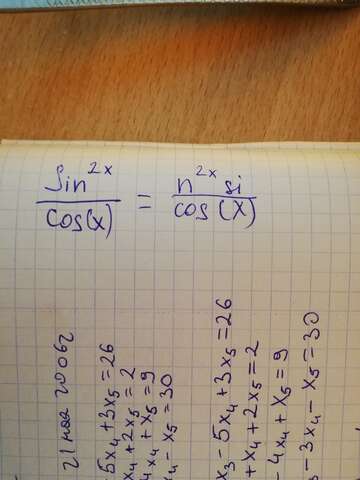 Sin^2x / cos(x) = n^2x si / cos(x)
21 мая 2006г
5x₄ + 3x₅ = 26
x₄ + 2x₅ = 2
4x₄ + x₅ = 9
x₄ - x₅ = 30
x₃ - 5x₄ + 3x₅ = 26
+ x₄ + 2x₅ = 2
- 4x₄ + x₅ = 9
- 3x₄ - x₅ = 30